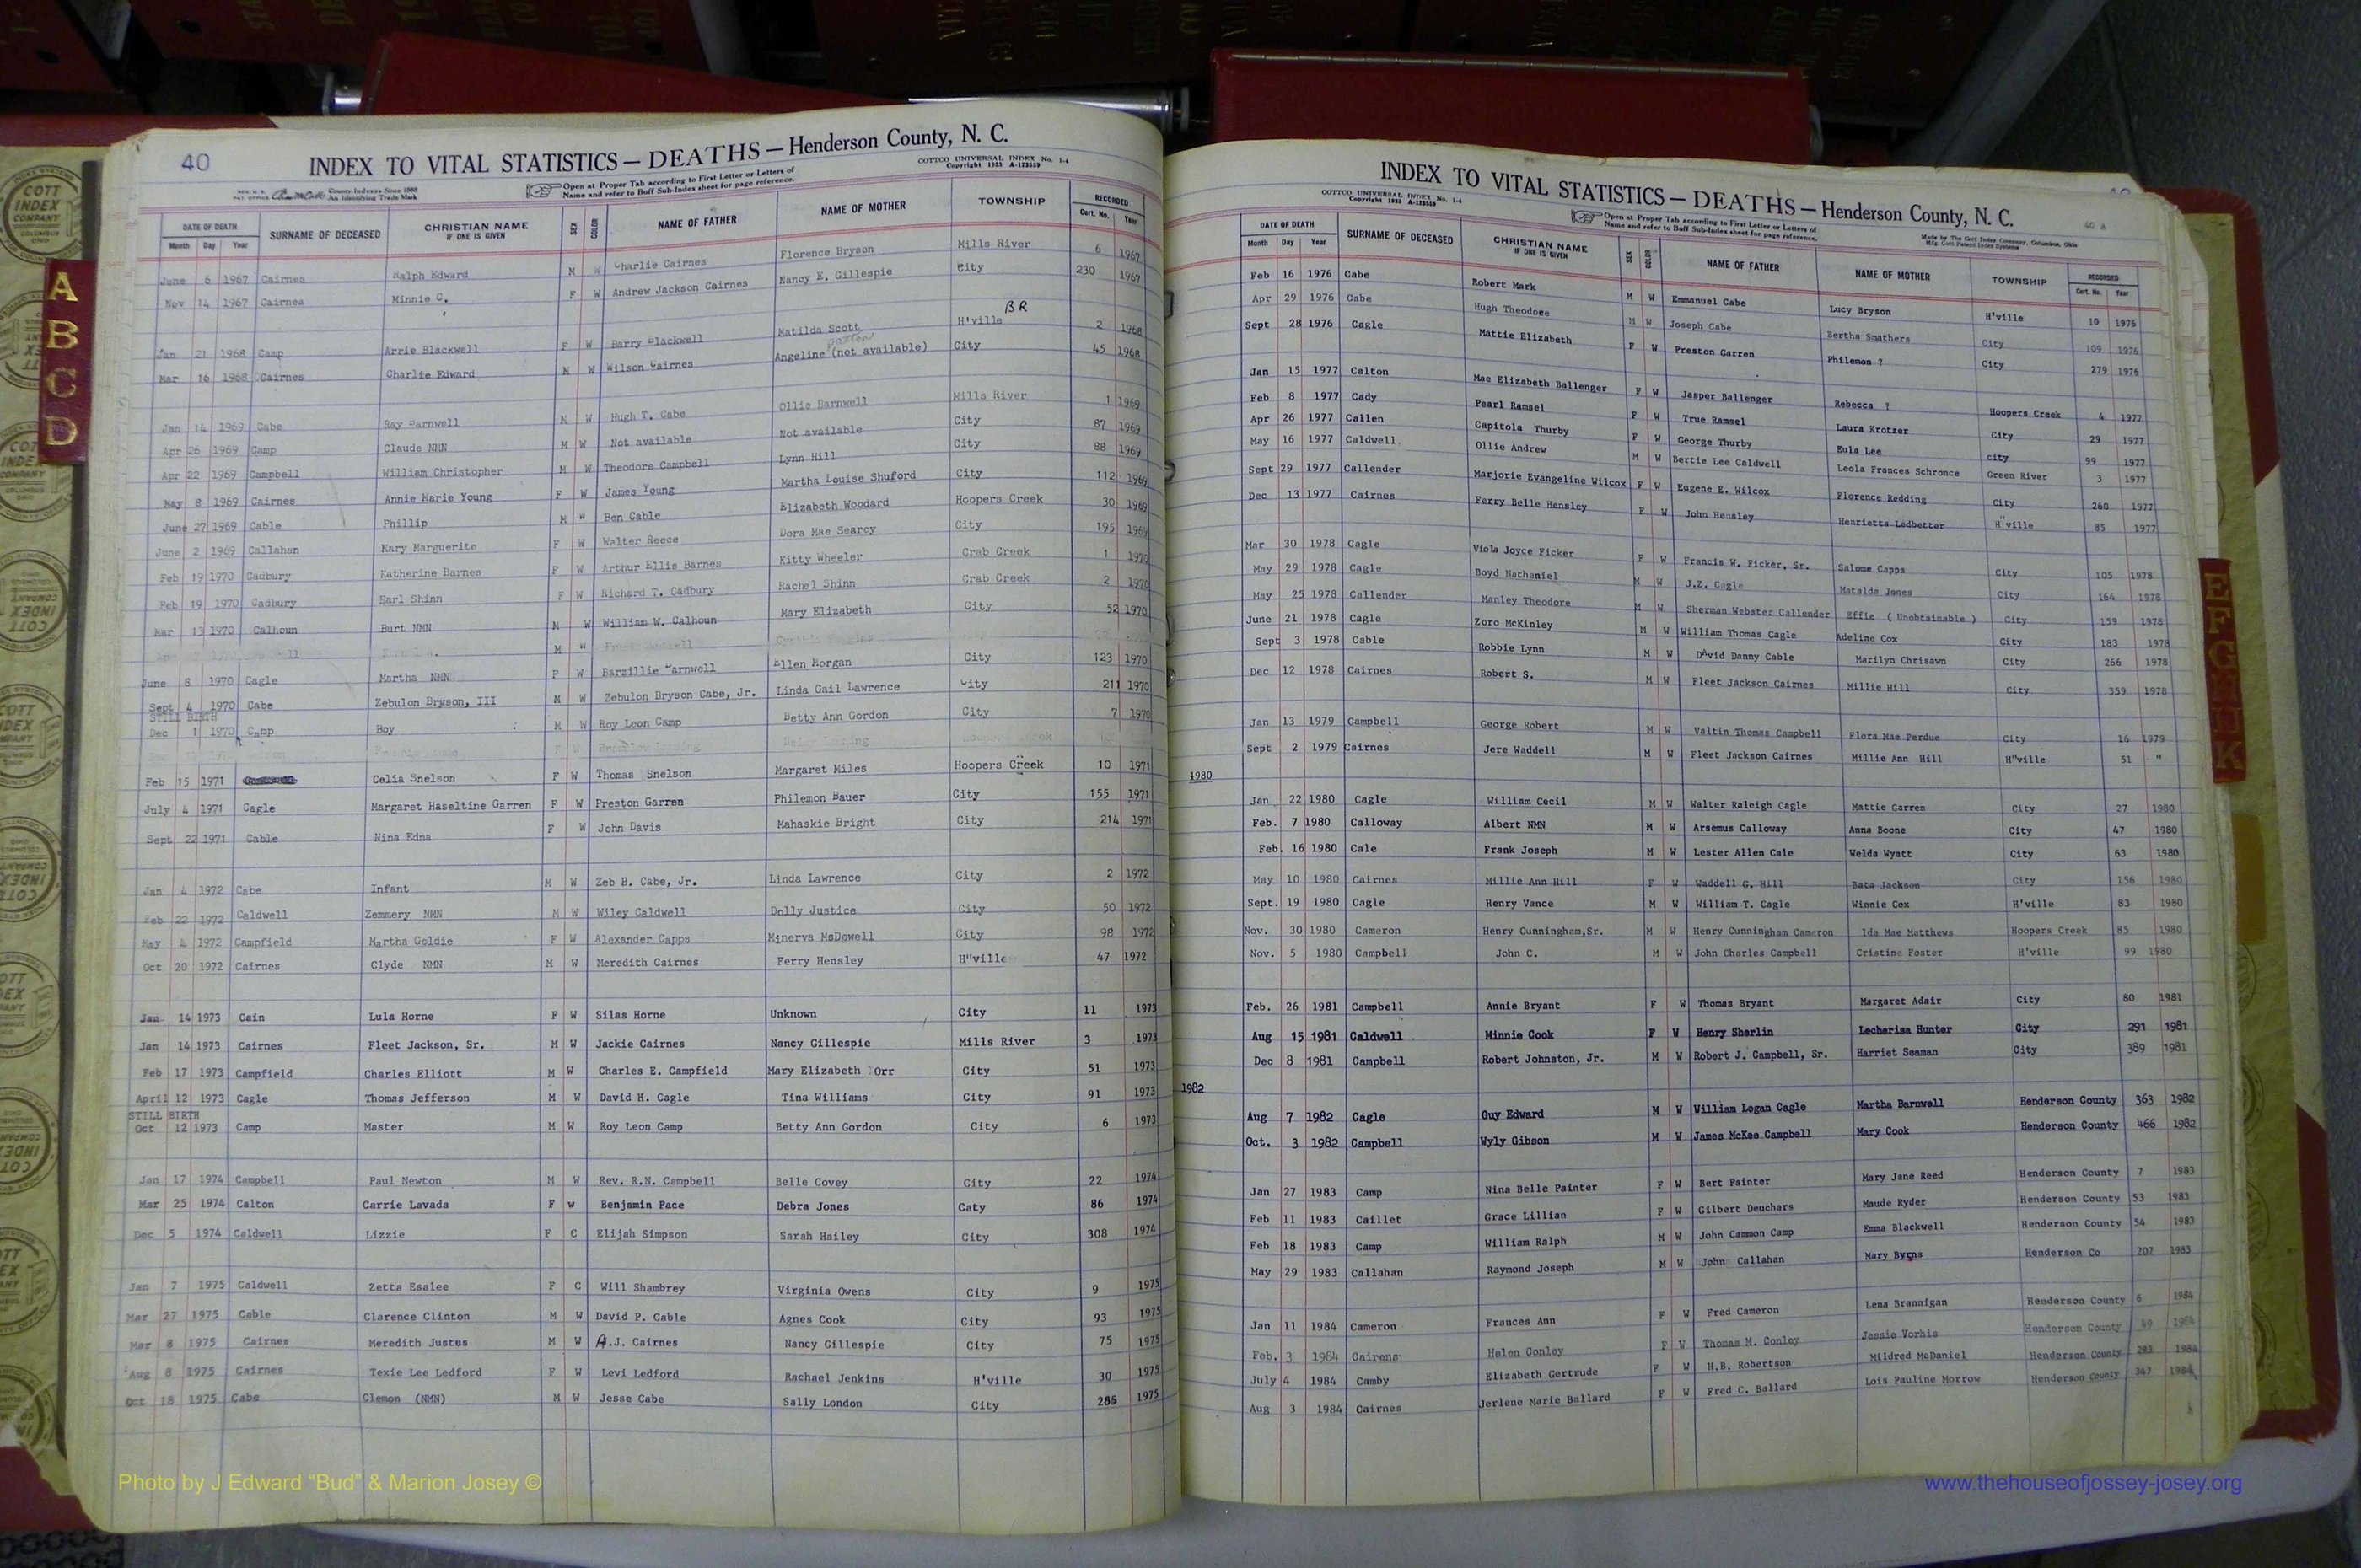 40
INDEX TO VITAL STATISTICS — DEATHS — Henderson County, N. C.
COTTCO UNIVERSAL INDEX No. 1-4
Copyright 1933 A-123559
County Indexes Since 1888
An Identifying Trade Mark
Open at Proper Tab according to First Letter or Letters of
Name and refer to Buff Sub-Index sheet for page reference.
DATE OF DEATH SURNAME OF DECEASED CHRISTIAN NAME IF ONE IS GIVEN SEX COLOR NAME OF FATHER NAME OF MOTHER TOWNSHIP RECORDED
Month Day Year Cert. No. Year
June 6 1967 Cairnes Ralph Edward M W Charlie Cairnes Florence Bryson Mills River 6 1967
Nov 14 1967 Cairnes Minnie C. F W Andrew Jackson Cairnes Nancy E. Gillespie City 230 1967
BR
Jan 21 1968 Camp Arrie Blackwell F W Barry Blackwell Matilda Scott H'ville 2 1968
Mar 16 1968 Cairnes Charlie Edward M W Wilson Cairnes Angeline (not available) City 45 1968
Jan 14 1969 Cabe Ray Barnwell M W Hugh T. Cabe Ollie Barnwell Mills River 1 1969
Apr 26 1969 Camp Claude NMN M W Not available Not available City 87 1969
Apr 22 1969 Campbell William Christopher M W Theodore Campbell Lynn Hill City 88 1969
May 8 1969 Cairnes Annie Marie Young F W James Young Martha Louise Shuford City 112 1969
June 27 1969 Cable Phillip M W Ben Cable Elizabeth Woodard Hoopers Creek 30 1969
June 2 1969 Callahan Mary Marguerite F W Walter Reece Dora Mae Searcy City 195 1969
Feb 19 1970 Cadbury Katherine Barnes F W Arthur Ellis Barnes Kitty Wheeler Crab Creek 1 1970
Feb 19 1970 Cadbury Earl Shinn F W Richard T. Cadbury Rachel Shinn Crab Creek 2 1970
Mar 13 1970 Calhoun Burt NMN M W William W. Calhoun Mary Elizabeth City 52 1970
M W
June 8 1970 Cagle Martha NMN F W Barzillie Barnwell Ellen Morgan City 123 1970
Sept 4 1970 Cabe Zebulon Bryson, III M W Zebulon Bryson Cabe, Jr. Linda Gail Lawrence City 211 1970
STILL BIRTH
Dec 1 1970 Camp Boy M W Roy Leon Camp Betty Ann Gordon City 7 1970
Feb 15 1971 Celia Snelson F W Thomas Snelson Margaret Miles Hoopers Creek 10 1971
July 4 1971 Cagle Margaret Haseltine Garren F W Preston Garren Philemon Bauer City 155 1971
Sept 22 1971 Cable Nina Edna F W John Davis Mahaskie Bright City 214 1971
Jan 4 1972 Cabe Infant M W Zeb B. Cabe, Jr. Linda Lawrence City 2 1972
Feb 22 1972 Caldwell Zemmery NMN M W Wiley Caldwell Dolly Justice City 50 1972
May 4 1972 Campfield Martha Goldie F W Alexander Capps Minerva McDowell City 98 1972
Oct 20 1972 Cairnes Clyde NMN M W Meredith Cairnes Ferry Hensley H"ville 47 1972
Jan 14 1973 Cain Lula Horne F W Silas Horne Unknown City 11 1973
Jan 14 1973 Cairnes Fleet Jackson, Sr. M W Jackie Cairnes Nancy Gillespie Mills River 3 1973
Feb 17 1973 Campfield Charles Elliott M W Charles E. Campfield Mary Elizabeth Orr City 51 1973
April 12 1973 Cagle Thomas Jefferson M W David H. Cagle Tina Williams City 91 1973
STILL BIRTH
Oct 12 1973 Camp Master M W Roy Leon Camp Betty Ann Gordon City 6 1973
Jan 17 1974 Campbell Paul Newton M W Rev. R.N. Campbell Belle Covey City 22 1974
Mar 25 1974 Calton Carrie Lavada F w Benjamin Pace Debra Jones Caty 86 1974
Dec 5 1974 Caldwell Lizzie F C Elijah Simpson Sarah Hailey City 308 1974
Jan 7 1975 Caldwell Zetta Esalee F C Will Shambrey Virginia Owens City 9 1975
Mar 27 1975 Cable Clarence Clinton M W David P. Cable Agnes Cook City 93 1975
Mar 8 1975 Cairnes Meredith Justus M W A.J. Cairnes Nancy Gillespie City 75 1975
Aug 8 1975 Cairnes Texie Lee Ledford F W Levi Ledford Rachael Jenkins H'ville 30 1975
Oct 18 1975 Cabe Clemon (NMN) M W Jesse Cabe Sally London City 285 1975
INDEX TO VITAL STATISTICS — DEATHS — Henderson County, N. C.
COTTCO UNIVERSAL INDEX No. 1-4
Copyright 1933 A-123559
Open at Proper Tab according to First Letter or Letters of
Name and refer to Buff Sub-Index sheet for page reference.
Made by The Cott Index Company, Columbus, Ohio
40 A
DATE OF DEATH SURNAME OF DECEASED CHRISTIAN NAME IF ONE IS GIVEN SEX COLOR NAME OF FATHER NAME OF MOTHER TOWNSHIP RECORDED
Month Day Year Cert. No. Year
Feb 16 1976 Cabe Robert Mark M W Emmanuel Cabe Lucy Bryson H'ville 10 1976
Apr 29 1976 Cabe Hugh Theodore M W Joseph Cabe Bertha Smathers City 109 1976
Sept 28 1976 Cagle Mattie Elizabeth F W Preston Garren Philemon ? City 279 1976
Jan 15 1977 Calton Mae Elizabeth Ballenger F W Jasper Ballenger Rebecca ? Hoopers Creek 4 1977
Feb 8 1977 Cady Pearl Ramsel F W True Ramsel Laura Krotzer City 29 1977
Apr 26 1977 Callen Capitola Thurby F W George Thurby Eula Lee city 99 1977
May 16 1977 Caldwell Ollie Andrew M W Bertie Lee Caldwell Leola Frances Schronce Green River 3 1977
Sept 29 1977 Callender Marjorie Evangeline Wilcox F W Eugene E. Wilcox Florence Redding City 260 1977
Dec 13 1977 Cairnes Ferry Belle Hensley F W John Hensley Henrietta Ledbetter H"ville 85 1977
Mar 30 1978 Cagle Viola Joyce Ficker F W Francis W. Ficker, Sr. Salome Capps City 105 1978
May 29 1978 Cagle Boyd Nathaniel M W J.Z. Cagle Matalda Jones City 164 1978
May 25 1978 Callender Manley Theodore M W Sherman Webster Callender Effie ( Unobtainable ) City 159 1978
June 21 1978 Cagle Zoro McKinley M W William Thomas Cagle Adeline Cox City 183 1978
Sept 3 1978 Cable Robbie Lynn M W David Danny Cable Marilyn Chrisawn City 266 1978
Dec 12 1978 Cairnes Robert S. M W Fleet Jackson Cairnes Millie Hill City 359 1978
Jan 13 1979 Campbell George Robert M W Valtin Thomas Campbell Flora Mae Perdue City 16 1979
Sept 2 1979 Cairnes Jere Waddell M W Fleet Jackson Cairnes Millie Ann Hill H"ville 51 "
1980
Jan 22 1980 Cagle William Cecil M W Walter Raleigh Cagle Mattie Garren City 27 1980
Feb. 7 1980 Calloway Albert NMN M W Arsemus Calloway Anna Boone City 47 1980
Feb. 16 1980 Cale Frank Joseph M W Lester Allen Cale Welda Wyatt City 63 1980
May 10 1980 Cairnes Millie Ann Hill F W Waddell G. Hill Bata Jackson City 156 1980
Sept. 19 1980 Cagle Henry Vance M W William T. Cagle Winnie Cox H'ville 83 1980
Nov. 30 1980 Cameron Henry Cunningham,Sr. M W Henry Cunningham Cameron Ida Mae Matthews Hoopers Creek 85 1980
Nov. 5 1980 Campbell John C. M W John Charles Campbell Cristine Foster H'ville 99 1980
Feb. 26 1981 Campbell Annie Bryant F W Thomas Bryant Margaret Adair City 80 1981
Aug 15 1981 Caldwell Minnie Cook F W Henry Sherlin Lecharisa Hunter City 291 1981
Dec 8 1981 Campbell Robert Johnston, Jr. M W Robert J. Campbell, Sr. Harriet Seaman City 389 1981
1982
Aug 7 1982 Cagle Guy Edward M W William Logan Cagle Martha Barnwell Henderson County 363 1982
Oct. 3 1982 Campbell Wyly Gibson M W James McKee Campbell Mary Cook Henderson County 466 1982
Jan 27 1983 Camp Nina Belle Painter F W Bert Painter Mary Jane Reed Henderson County 7 1983
Feb 11 1983 Caillet Grace Lillian F W Gilbert Deuchars Maude Ryder Henderson County 53 1983
Feb 18 1983 Camp William Ralph M W John Cammon Camp Emma Blackwell Henderson County 54 1983
May 29 1983 Callahan Raymond Joseph M W John Callahan Mary Byrns Henderson Co 207 1983
Jan 11 1984 Cameron Frances Ann F W Fred Cameron Lena Brannigan Henderson County 6 1984
Feb. 3 1984 Cairens Helen Conley F W Thomas M. Conley Jessie Vorhis Henderson County 49 1984
July 4 1984 Camby Elizabeth Gertrude F W H.B. Robertson Mildred McDaniel Henderson County 293 1984
Aug 3 1984 Cairnes Jerlene Marie Ballard F W Fred C. Ballard Lois Pauline Morrow Henderson County 347 1984
A
B
C
D
COTT
INDEX
COMPANY
Photo by J Edward “Bud” & Marion Josey ©
www.thehouseofjossey-josey.org